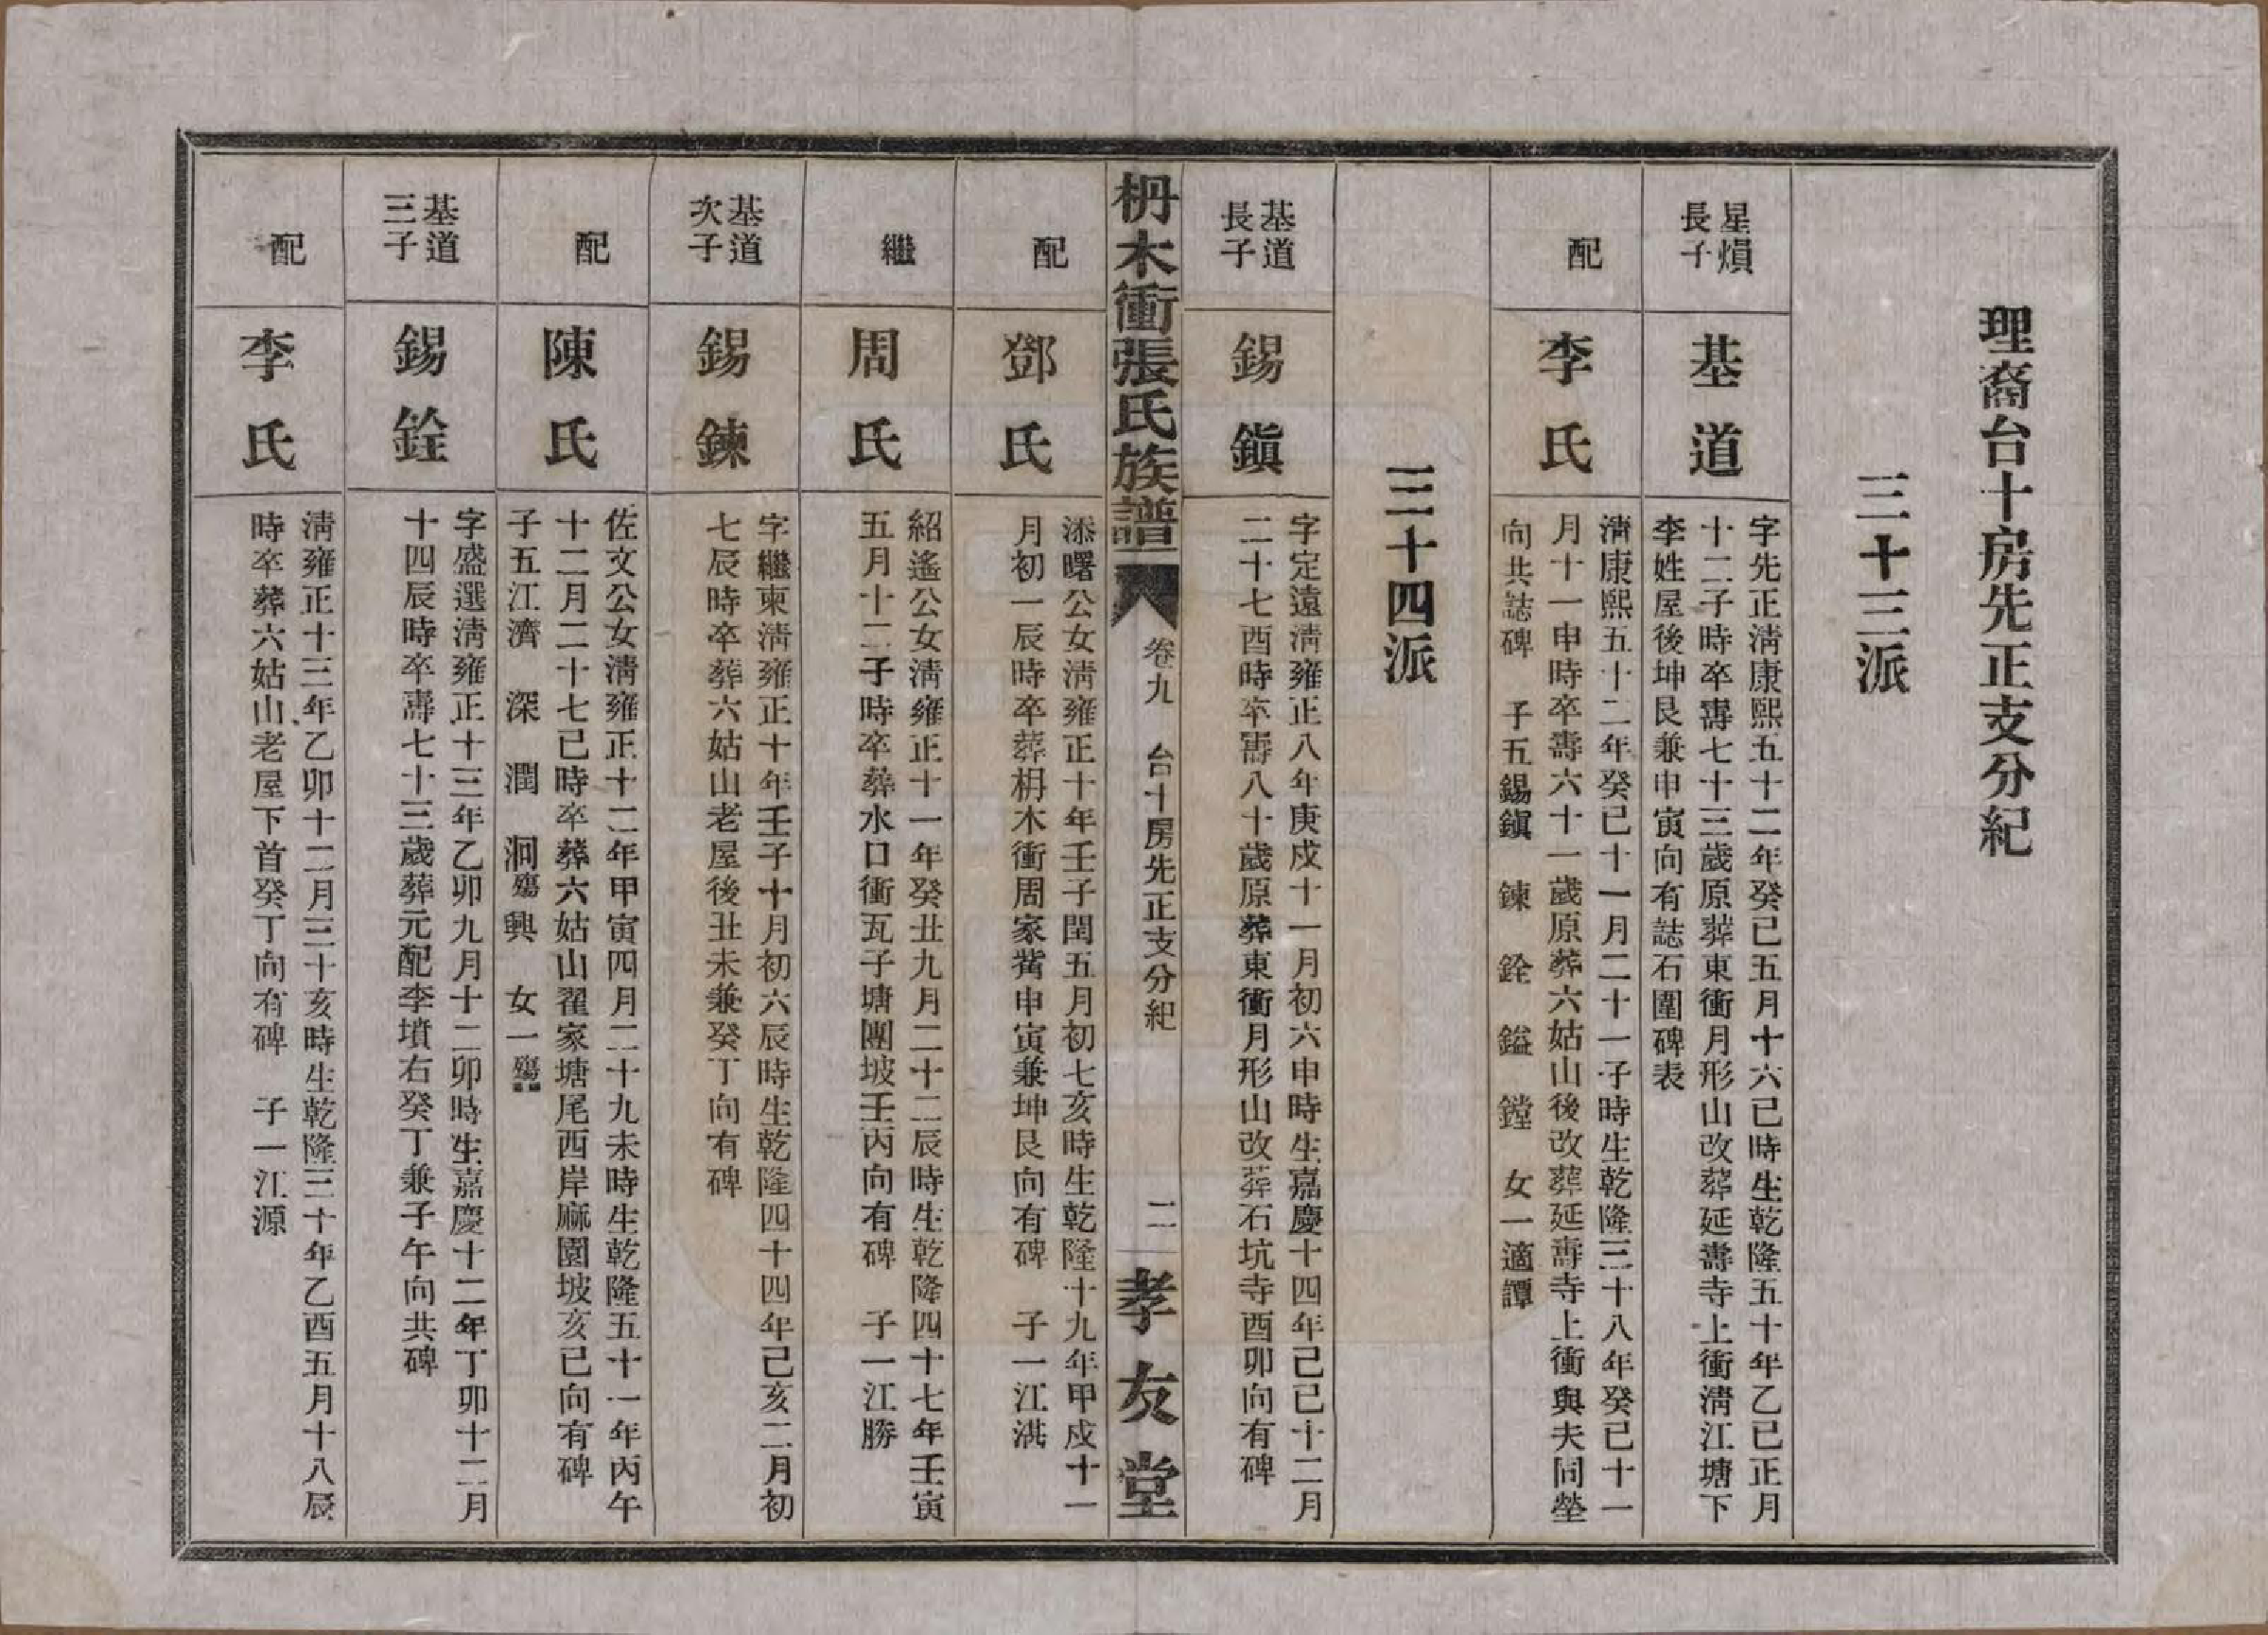 理裔台十房先正支分紀
三十三派
星熉
長子
基道
字先正淸康熙五十二年癸巳五月十六巳時生乾隆五十年乙巳正月
十二子時卒壽七十三歲原葬東衝月形山改葬延壽寺上衝淸江塘下
李姓屋後坤艮兼申寅向有誌石圍碑表
配
李氏
淸康熙五十二年癸巳十一月二十一子時生乾隆三十八年癸巳十一
月十一申時卒壽六十一歲原葬六姑山後改葬延壽寺上衝與夫同塋
向共誌碑 子五錫鎭 鍊 銓 鎰 鏜 女一適譚
三十四派
基道
長子
錫鎭
字定遠淸雍正八年庚戍十一月初六申時生嘉慶十四年己巳十二月
二十七酉時卒壽八十歲原葬東衝月形山改葬石坑寺酉卯向有碑
枬木衝張氏族譜
卷九 台十房先正支分紀
二
孝友堂
配
鄧氏
添曙公女淸雍正十年壬子閏五月初七亥時生乾隆十九年甲戍十一
月初一辰時卒葬枬木衝周家嘴申寅兼坤艮向有碑 子一江淇
繼
周氏
紹遙公女淸雍正十一年癸丑九月二十二辰時生乾隆四十七年壬寅
五月十二子時卒葬水口衝瓦子塘團坡壬丙向有碑 子一江勝
基道
次子
錫鍊
字繼東淸雍正十年壬子十月初六辰時生乾隆四十四年己亥二月初
七辰時卒葬六姑山老屋後丑未兼癸丁向有碑
配
陳氏
佐文公女淸雍正十二年甲寅四月二十九未時生乾隆五十一年丙午
十二月二十七巳時卒葬六姑山翟家塘尾西岸麻園坡亥巳向有碑
子五江濟 深 潤 洞殤興 女一殤
基道
三子
錫銓
字盛選淸雍正十三年乙卯九月十二卯時生嘉慶十二年丁卯十二月
十四辰時卒壽七十三歲葬元配李墳右癸丁兼子午向共碑
配
李氏
淸雍正十三年乙卯十二月三十亥時生乾隆三十年乙酉五月十八辰
時卒葬六姑山老屋下首癸丁向有碑 子一江源